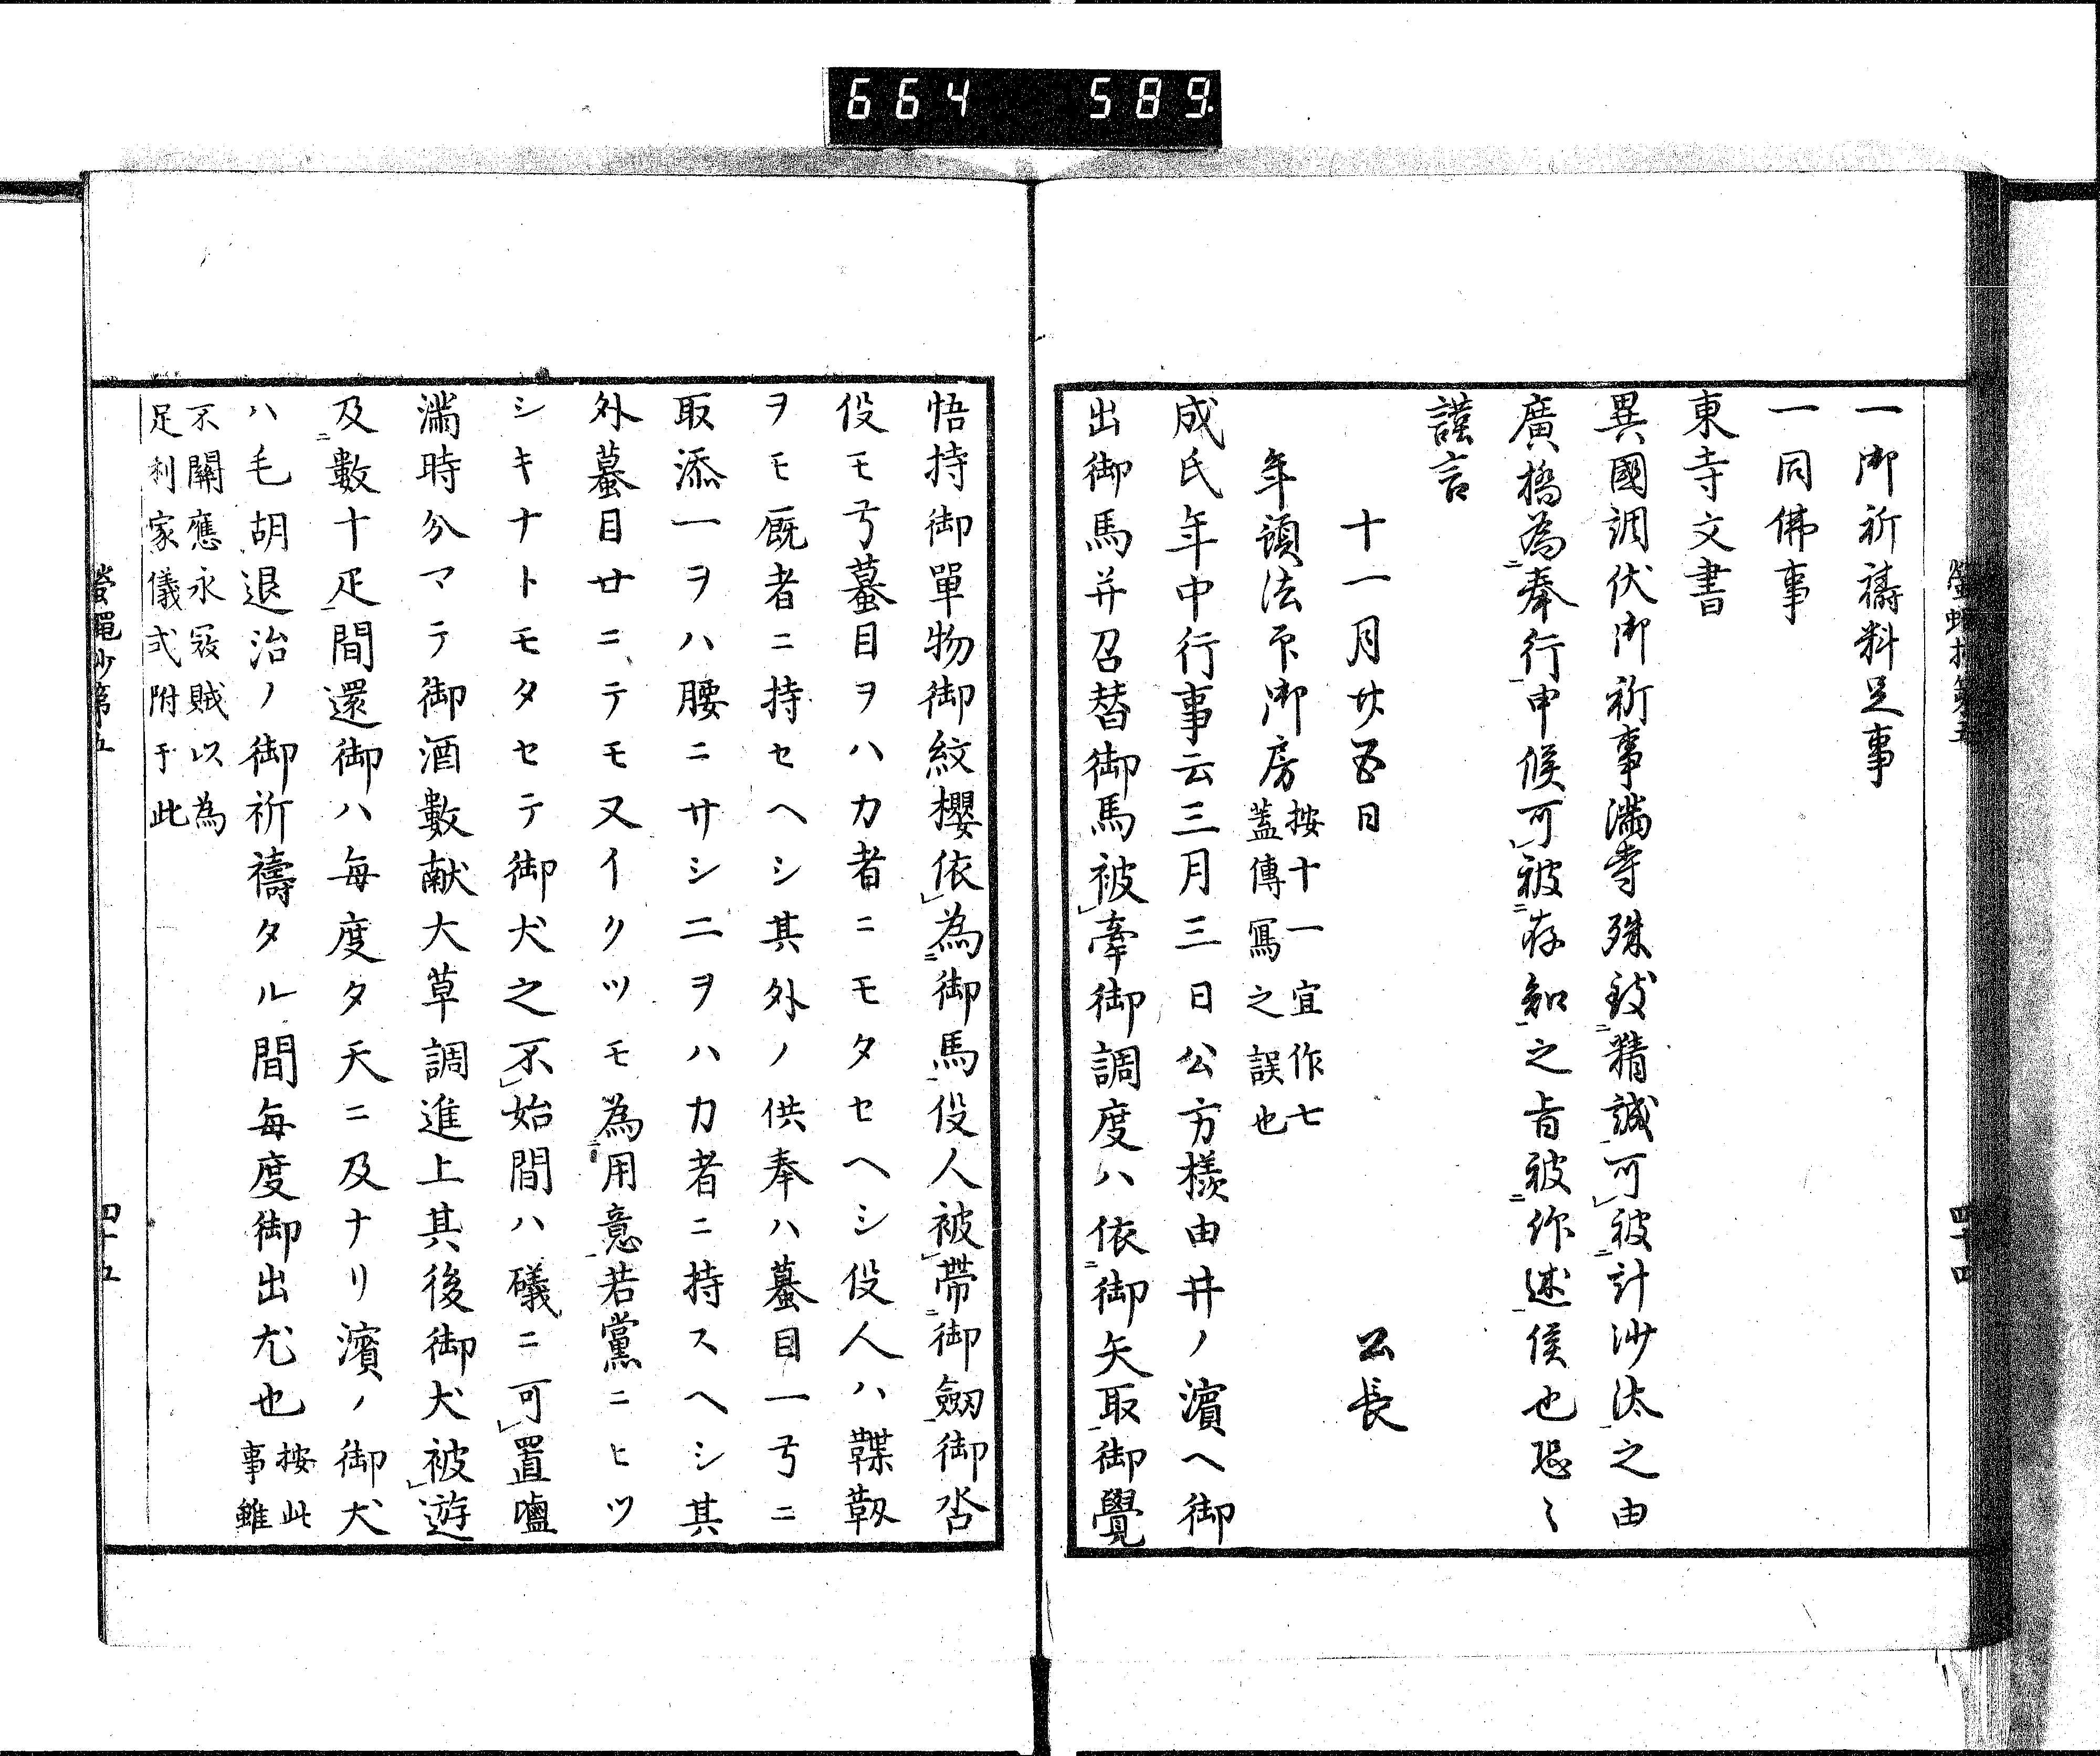 664 589
一御祈禱料足事
一同佛事
東寺文書
異國調伏御祈事滿寺殊致精誠可被計沙汰之由
廣橋為奉行申候可被存知之旨被作述候也恐〻
謹言
十一月廿五日 公長
年預法印御房 按十一宜作七
蓋傳寫之誤也
成氏年中行事云三月三日公方樣由井ノ濵ヘ御
出御馬并召替御馬被牽御調度ハ依御矢取御覺
悟持御單物御紋櫻依為御馬役人被帶御劔御沓
役モ弓蟇目ヲハカ者ニモタセヘシ役人ハ鞢靫
ヲモ厩者ニ持セヘシ其外ノ供奉ハ蟇目一弓ニ
取添一ヲハ腰ニサシ二ヲハカ者ニ持スヘシ其
外蟇目廿ニテモ又イクツモ為用意若黨ニヒツ
シキナトモタセテ御犬之不始間ハ礒ニ可置𡈽
滿時分マテ御酒數献大草調進上其後御犬被遊
及數十疋間還御ハ毎度タ天ニ及ナリ濵ノ御犬
ハ毛胡退治ノ御祈禱タル間毎度御出尤也 按此
事雖
不關應永冦賊以為
足利家儀式附于此
螢蠅抄第五 四十四
螢蠅抄第五 四十五